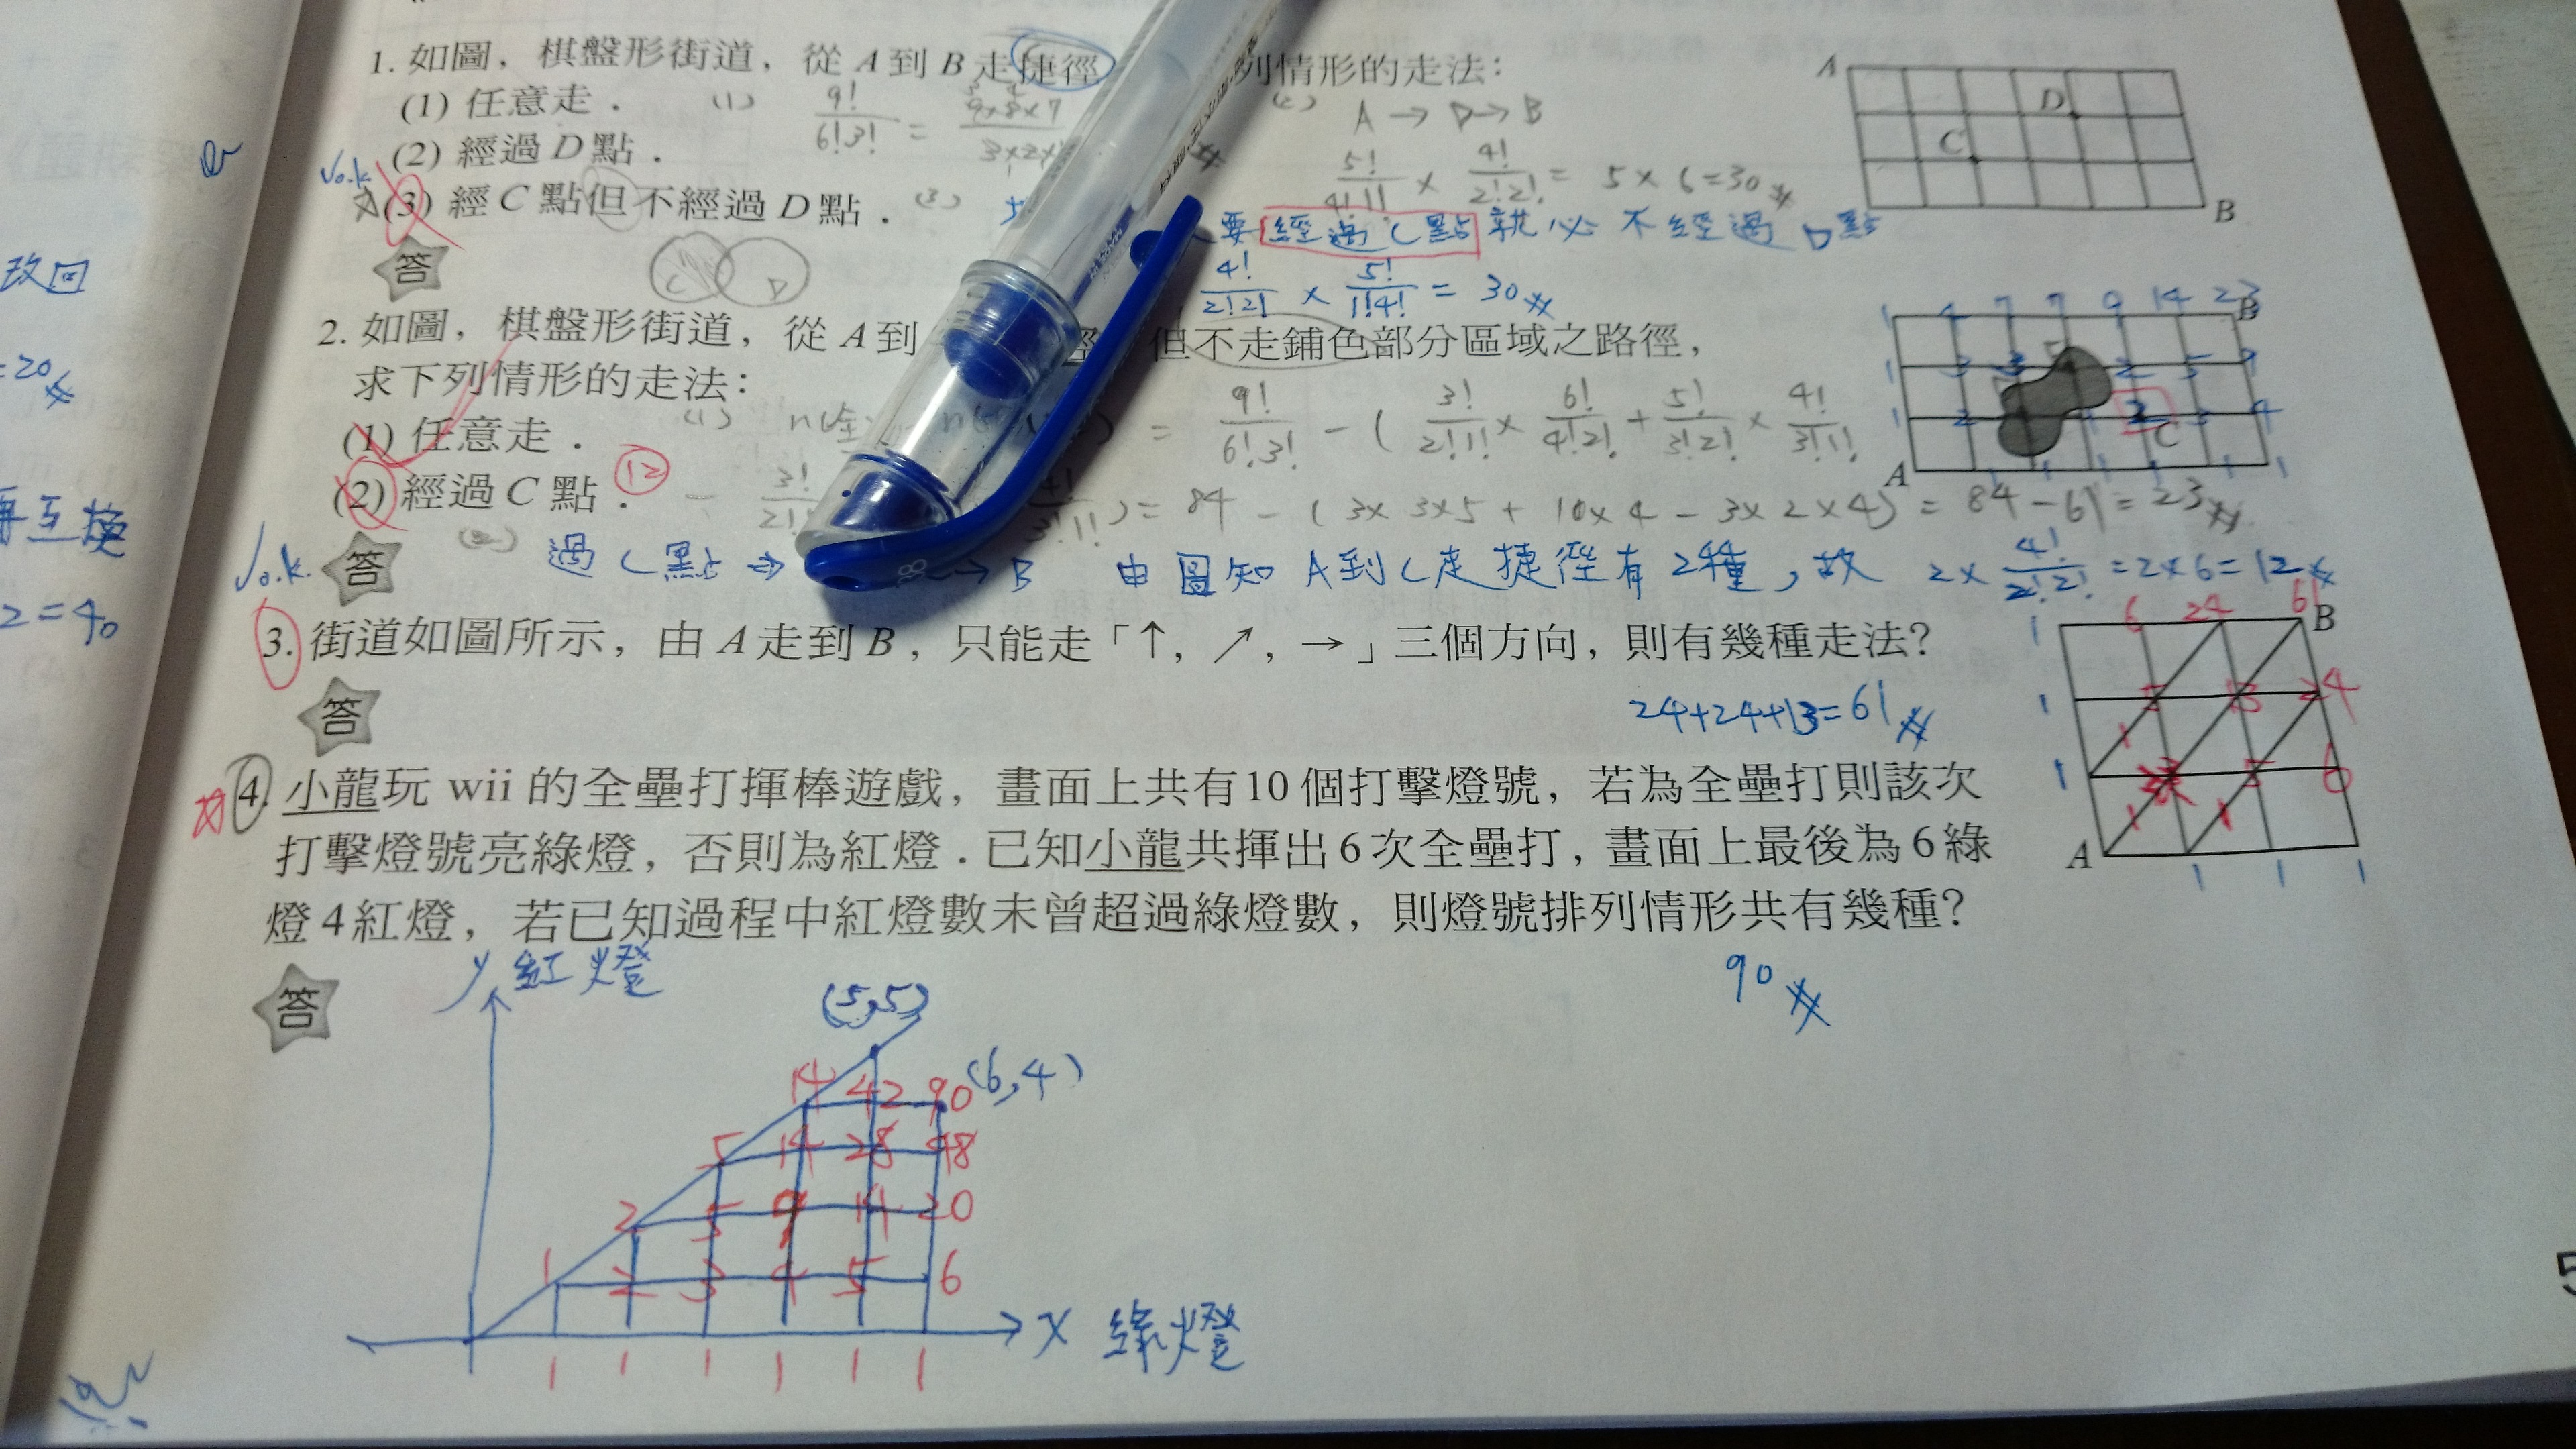 1. 如圖，棋盤形街道，從 A 到 B 走捷徑 列情形的走法：
(1) 任意走．
(2) 經過 D 點．
(3) 經 C 點但不經過 D 點．
(1) 9!/6!3! = 9×8×7/3×2×
(2) A → D → B
5!/4!1! × 4!/2!2! = 5 × 6 = 30
(3) 要經過C點就必不經過D點
4!/2!2! × 5!/1!4! = 30
√o.k.
C D
A D C B
答
2. 如圖，棋盤形街道，從 A 到 徑 但不走鋪色部分區域之路徑，
求下列情形的走法：
(1) 任意走．
(2) 經過 C 點． 12
(1) = 9!/6!3! − ( 3!/2!1! × 6!/4!2! + 5!/3!2! × 4!/3!1!
− 3!/2! 4!/3!1! ) = 84 − ( 3×3×5 + 10×4 − 3×2×4 ) = 84 − 61 = 23
(2) 過C點 ⇒ → B 由圖知 A到C走捷徑有2種，故 2 × 4!/2!2! = 2×6 = 12
√o.k.
1 4 7 7 9 14 23 B
A C
答
3. 街道如圖所示，由 A 走到 B，只能走「↑，↗，→」三個方向，則有幾種走法？
24+24+13=61
1 6 24 61 B
1 5 13 24
1 3 5 6
A 1 1 1
答
4. 小龍玩 wii 的全壘打揮棒遊戲，畫面上共有10個打擊燈號，若為全壘打則該次
打擊燈號亮綠燈，否則為紅燈．已知小龍共揮出6次全壘打，畫面上最後為6綠
燈4紅燈，若已知過程中紅燈數未曾超過綠燈數，則燈號排列情形共有幾種？
90
答
y 紅燈
(5,5)
14 42 90 (6,4)
5 14 28 48
2 5 9 14 20
1 2 3 4 5 6
x 綠燈
1 1 1 1 1 1
改回
=20
再互換
2=40
5